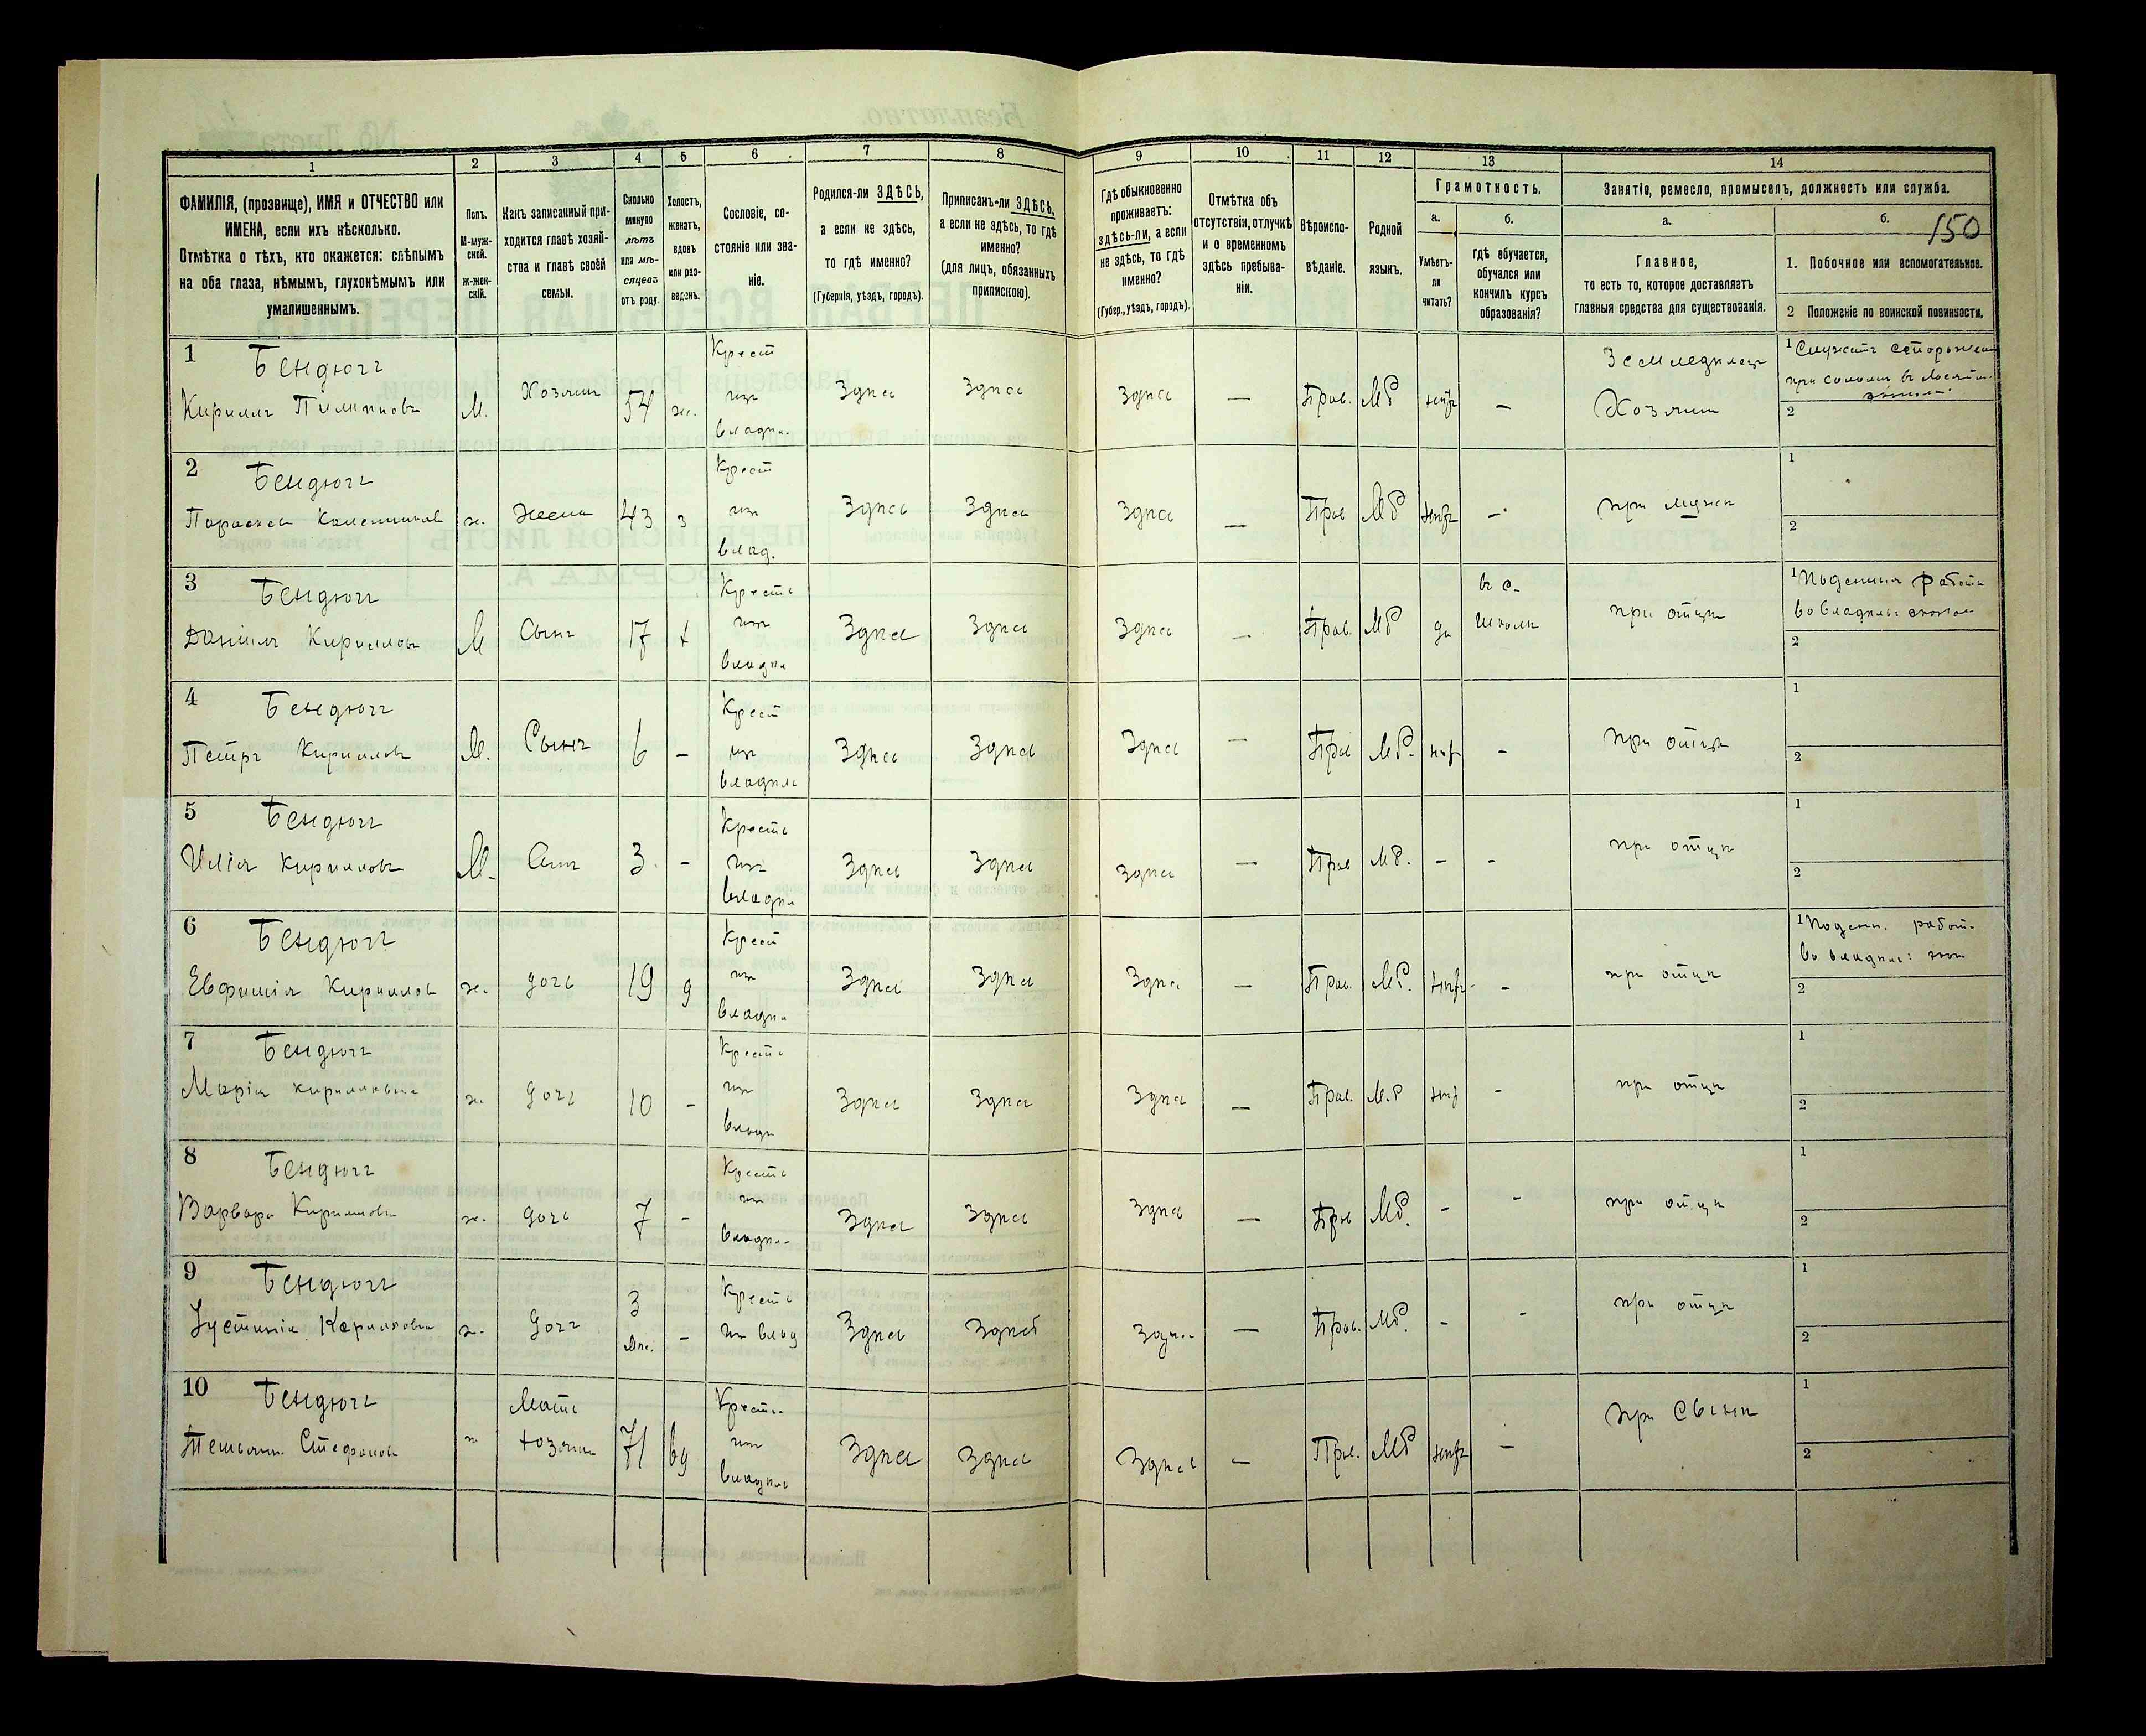 150
1
2
3
4
5
6
7
8
9
10
11
12
13
14
ФАМИЛІЯ, (прозвище), ИМЯ и ОТЧЕСТВО или
ИМЕНА, если ихъ нѣсколько.
Отмѣтка о тѣхъ, кто окажется: слѣпымъ
на оба глаза, нѣмымъ, глухонѣмымъ или
умалишеннымъ.
Полъ.
М-муж-
ской.
ж-жен-
скій.
Какъ записанный при-
ходится главѣ хозяй-
ства и главѣ своей
семьи.
Сколько
минуло
лѣтъ
или мѣ-
сяцевъ
отъ роду.
Холостъ,
женатъ,
вдовъ
или раз-
веденъ.
Сословіе, со-
стояніе или зва-
ніе.
Родился-ли ЗДѢСЬ,
а если не здѣсь,
то гдѣ именно?
(Губернія, уѣздъ, городъ).
Приписанъ-ли ЗДѢСЬ,
а если не здѣсь, то гдѣ
именно?
(для лицъ, обязанныхъ
припискою).
Гдѣ обыкновенно
проживаетъ:
здѣсь-ли, а если
не здѣсь, то гдѣ
именно?
(Губер., уѣздъ, городъ).
Отмѣтка объ
отсутствіи, отлучкѣ
и о временномъ
здѣсь пребыва-
ніи.
Вѣроиспо-
вѣданіе.
Родной
языкъ.
Грамотность.
а.
Умѣетъ-
ли
читать?
б.
гдѣ обучается,
обучался или
кончилъ курсъ
образованія?
Занятіе, ремесло, промыселъ, должность или служба.
а.
Главное,
то есть то, которое доставляетъ
главныя средства для существованія.
б.
1. Побочное или вспомогательное.
2 Положеніе по воинской повинности.
1 Бендюгъ
Кириллъ
М. Хозяинъ 54 ж.
Крест
изъ
владѣл.
Здѣсь Здѣсь Здѣсь — Прав. Мр нѣтъ —
Земледѣлецъ
Хозяинъ
1 Служитъ сторожем
при
2
2 Бендюгъ
ж. жена 43 з
Крест
изъ
влад.
Здѣсь Здѣсь Здѣсь — Прав Мр нѣтъ —
при мужѣ
1
2
3 Бендюгъ
Даніилъ Кирилловъ
М Сынъ 17 х
Кресть
изъ
владѣл
Здѣсь Здѣсь Здѣсь — Прав. Мр да
въ с.
школѣ
при отцѣ
1 Поденныя работы
во владѣль: эконом
2
4 Бендюгъ
Петръ Кирилловъ
М. Сынъ 6 -
Крест
изъ
владѣль
Здѣсь Здѣсь Здѣсь — Прав Мр. нѣт -
при отцѣ
1
2
5 Бендюгъ
Илія Кирилловъ
М. Сынъ 3. -
Кресть
изъ
владѣл
Здѣсь Здѣсь Здѣсь — Прав Мр. - -
при отцѣ
1
2
6 Бендюгъ
Евфимія Кириллов
ж. дочь 19 д
Крест
изъ
владѣл
Здѣсь Здѣсь Здѣсь — Прав. Мр. нѣтъ -
при отцѣ
1 Поден. работ.
во владѣл: экон
2
7 Бендюгъ
Марія Кирилловна
ж. дочь 10 -
Кресть
изъ
владѣ
Здѣсь Здѣсь Здѣсь — Прав. М.р нѣт -
при отцѣ
1
2
8 Бендюгъ
Варвара Кириллов
ж. дочь 7 -
Кресть
изъ
владѣл.
Здѣсь Здѣсь Здѣсь — Прав Мр. - -
при отцѣ
1
2
9 Бендюгъ
Іустинія Кирилловна
ж. дочь
3
мѣс. -
Кресть
изъ влад
Здѣсь Здѣсь Здѣсь — Прав. Мр. - -
при отцѣ
1
2
10 Бендюгъ
Стефанов
ж
Мать
хозяина
71 вд
Кресть.
изъ
владѣль
Здѣсь Здѣсь Здѣсь — Прав. Мр нѣтъ —
при сынѣ
1
2